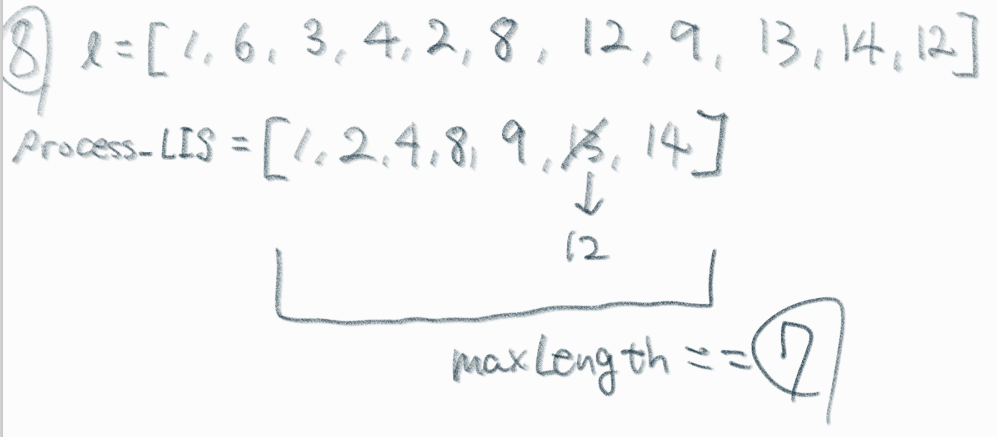 ⑧ l = [1, 6, 3, 4, 2, 8, 12, 9, 13, 14, 12]
Process_LIS = [1, 2, 4, 8, 9, 13, 14]
↓
12
maxLength == ⑦